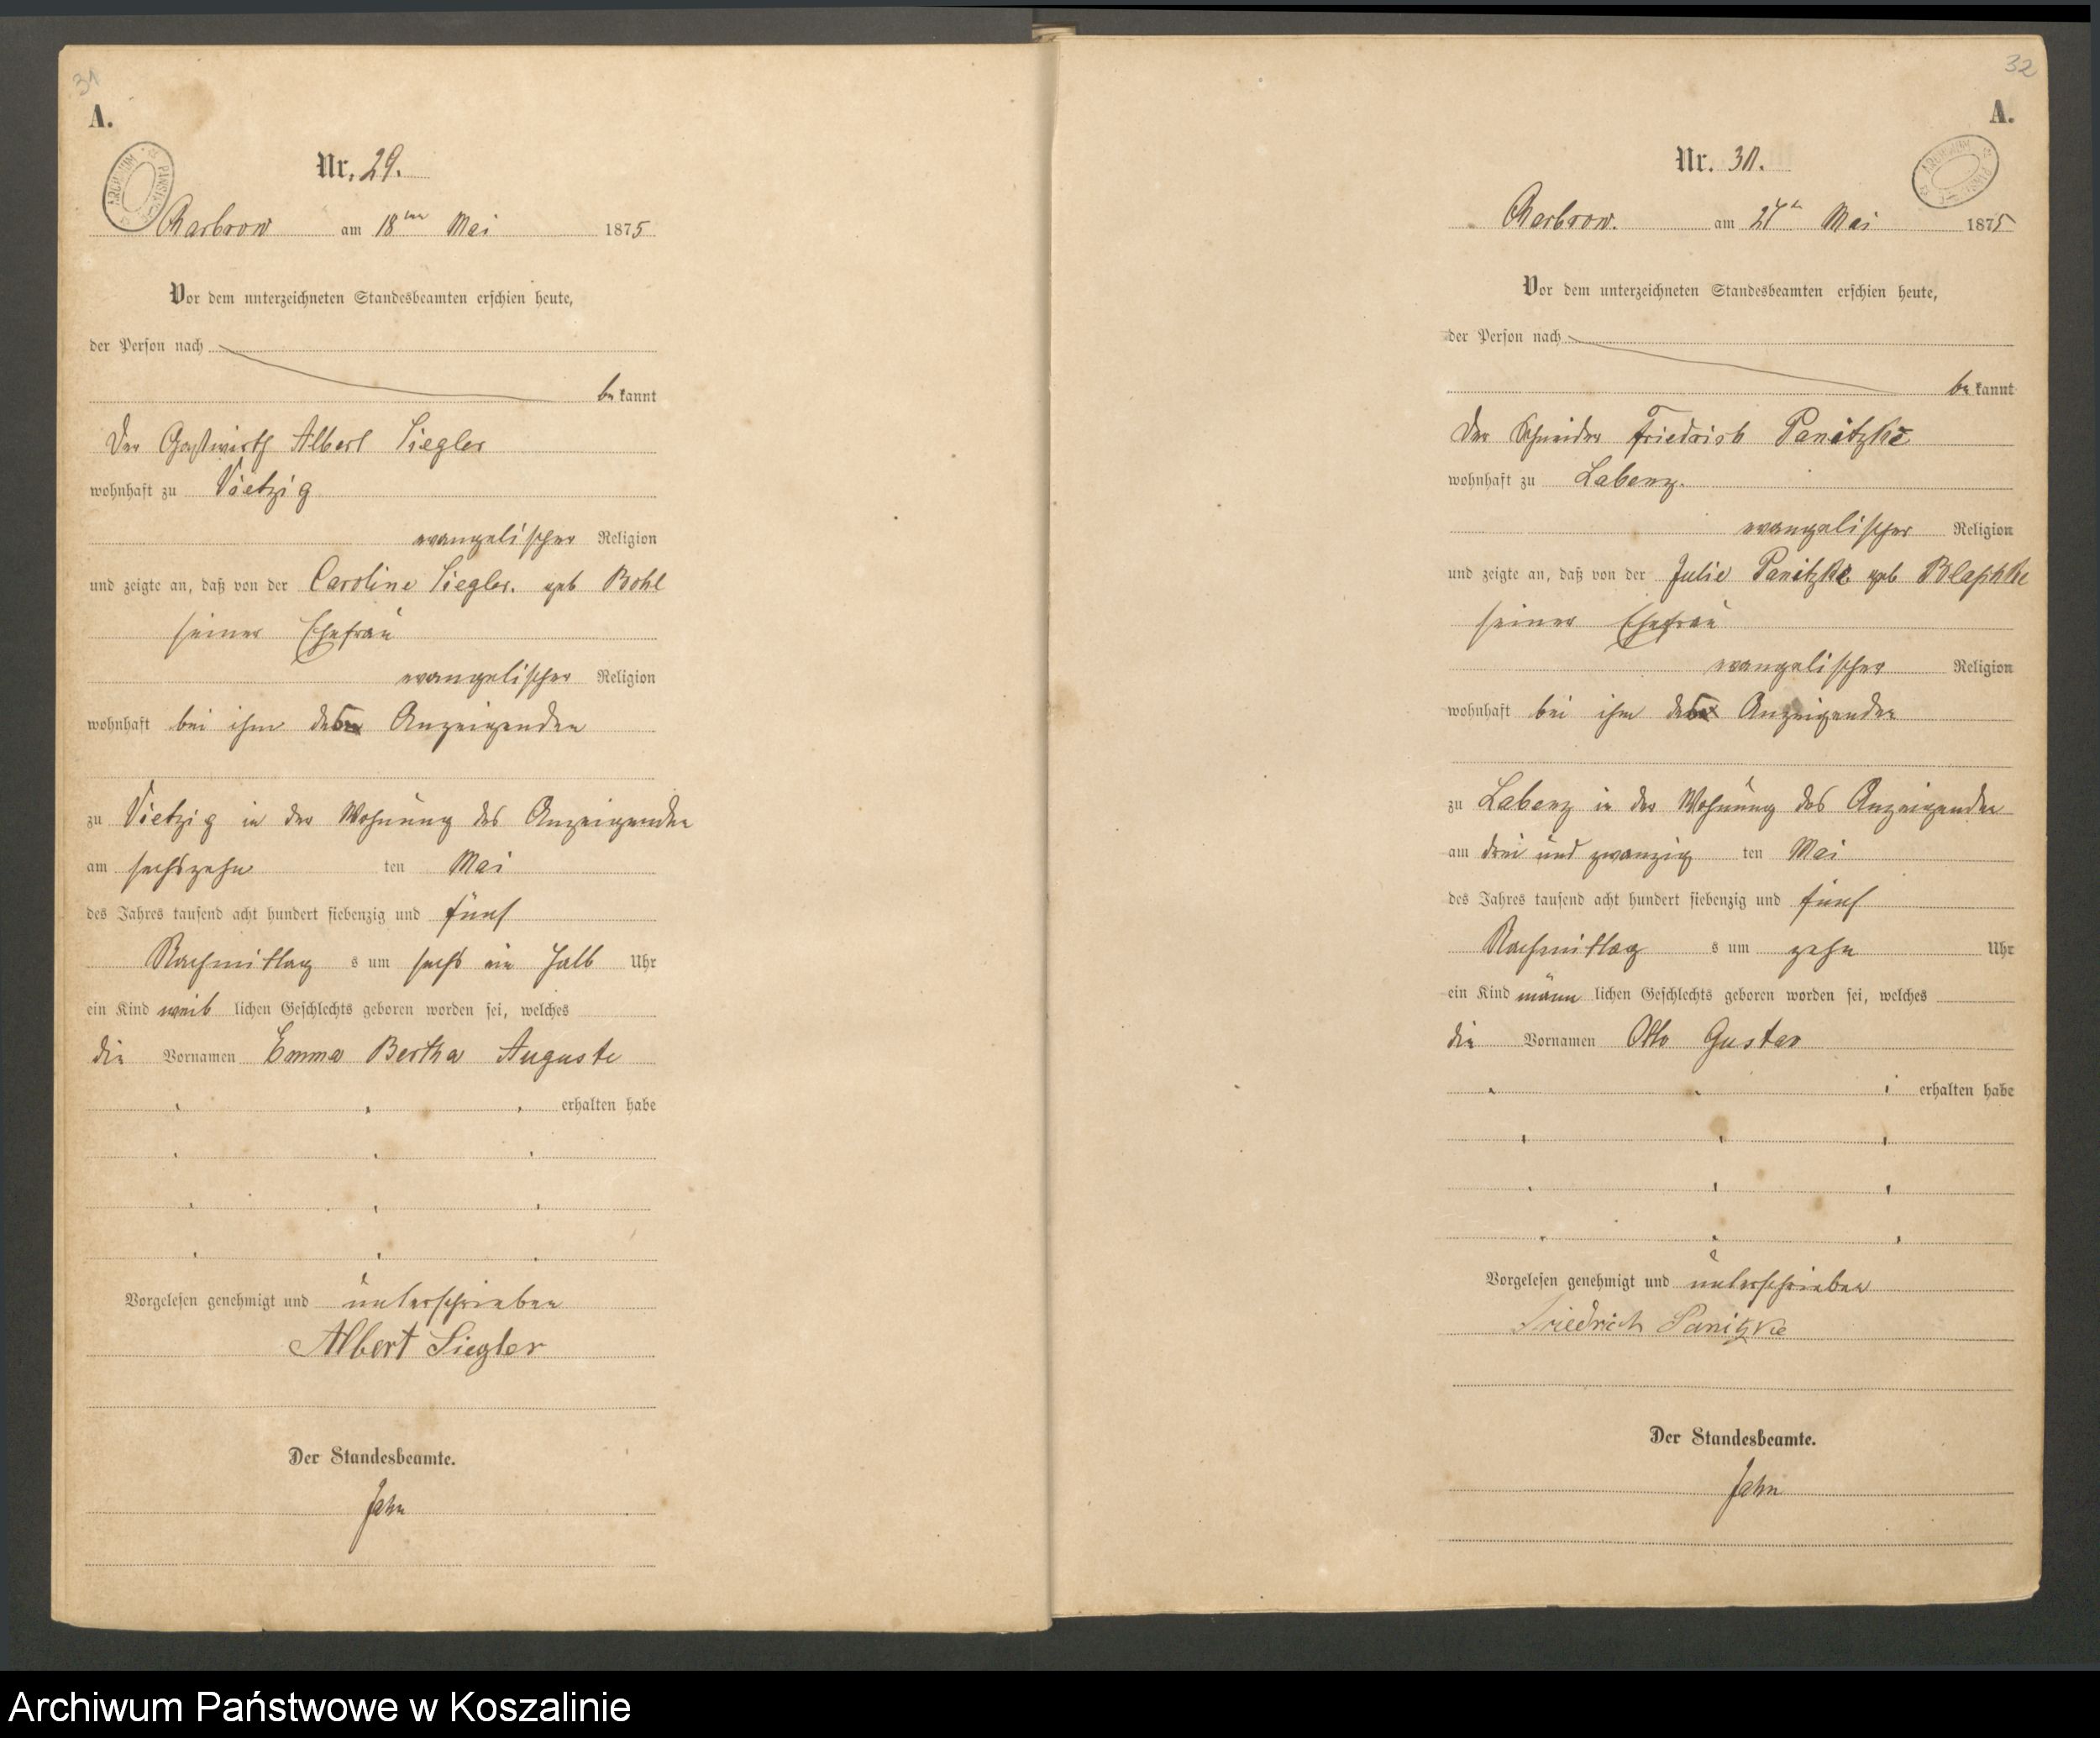 31
A.
ARCHIWUM PAŃSTW
Nr. 29.
Charbrow am 18ten Mai 1875
Vor dem unterzeichneten Standesbeamten erschien heute,
der Person nach
be kannt
Der Gastwirth Albert Siegler
wohnhaft zu Vietzig
evangelischer Religion
und zeigte an, daß von der Caroline Siegler. geb Bohl
seiner Ehefrau
evangelischer Religion
wohnhaft bei ihm dem Anzeigenden
zu Vietzig in der Wohnung des Anzeigenden
am sechszehn ten Mai
des Jahres tausend acht hundert siebenzig und fünf
Nachmittag s um sechs ein halb Uhr
ein Kind weib lichen Geschlechts geboren worden sei, welches
die Vornamen Emma Bertha Auguste
erhalten habe
Vorgelesen genehmigt und unterschrieben
Albert Siegler
Der Standesbeamte.
Jahn
32
A.
Nr. 31.
Charbrow. am 27t Mai 1875
Vor dem unterzeichneten Standesbeamten erschien heute,
der Person nach
be kannt
Der Schneider Friedrich Panitzke
wohnhaft zu Labenz.
evangelischer Religion
und zeigte an, daß von der Julie Panitzke geb Blaschke
seiner Ehefrau
evangelischer Religion
wohnhaft bei ihm dem Anzeigenden
zu Labenz in der Wohnung des Anzeigenden
am drei und zwanzig ten Mai
des Jahres tausend acht hundert siebenzig und fünf
Nachmittag s um zehn Uhr
ein Kind männ lichen Geschlechts geboren worden sei, welches
die Vornamen Otto Gustav
erhalten habe
Vorgelesen genehmigt und unterschrieben
Friedrich Panitzke
Der Standesbeamte.
Jahn
Archiwum Państwowe w Koszalinie